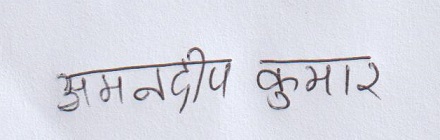 अमनदीप कुमार